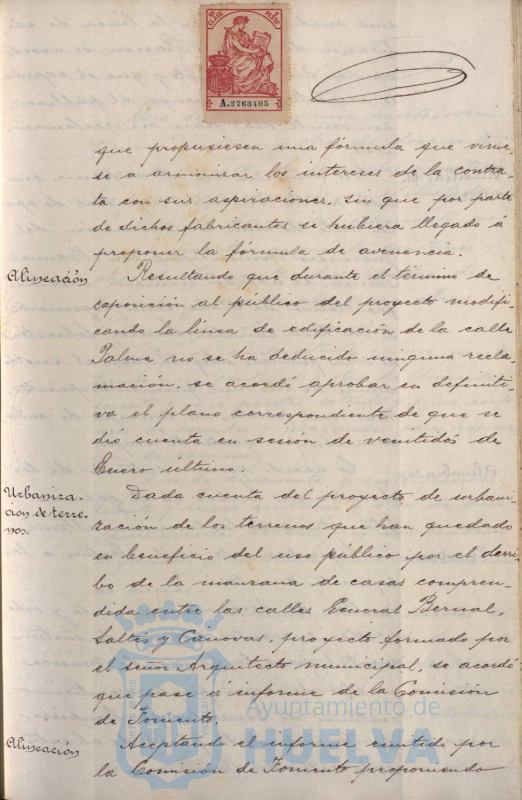 A.2763405
que propusiesen una fórmula que vinie-
se a armonizar los intereses de la contra-
ta con sus aspiraciones, sin que por parte
de dichos fabricantes se hubiera llegado á
proponer la fórmula de avenencia.
Alineación
Resultando que durante el término de
exposición al público del proyecto modifi-
cando la línea de edificación de la calle
Palma no se ha deducido ninguna recla-
mación, se acordó aprobar en definiti-
va el plano correspondiente de que se
dió cuenta en sesión de veintidós de
Enero último.
Urbaniza-
ción de terre-
nos.
Dada cuenta del proyecto de urbani-
zación de los terrenos que han quedado
en beneficio del uso público por el derri-
bo de la manzana de casas compren-
dida entre las calles General Bernal,
Saltés y Canovas, proyecto formado por
el señor Arquitecto municipal, se acordó
que pase á informe de la Comisión
de Fomento.
Alineación
Aceptando el informe emitido por
la Comisión de Fomento proponiendo
Ayuntamiento de
HUELVA